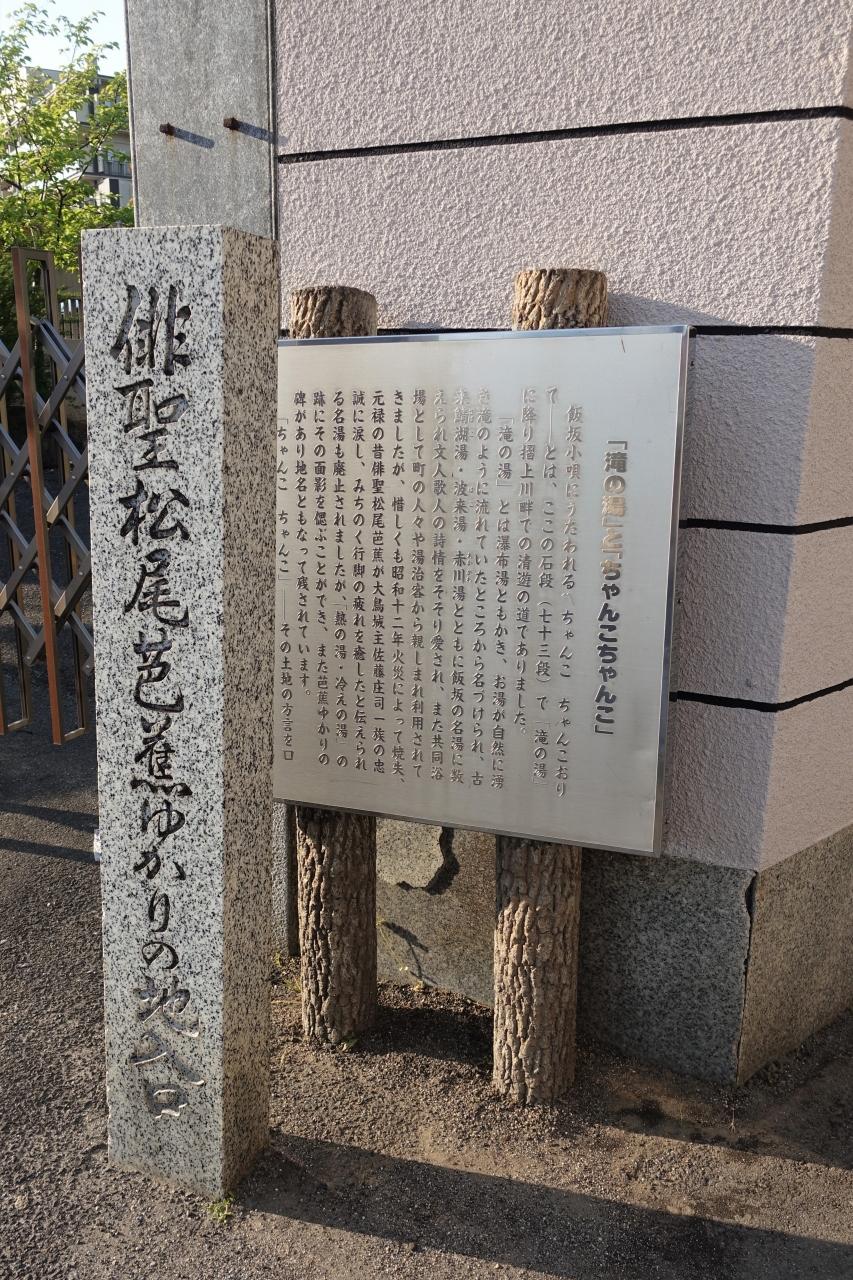 俳聖松尾芭蕉ゆかりの地入口
「滝の湯」と「ちゃんこちゃんこ」
飯坂小唄にうたわれる ちゃんこ ちゃんこおり
て――とは、ここの石段（七十三段）で「滝の湯」
に降り摺上川畔での清遊の道でありました。
「滝の湯」とは瀑布湯ともかき、お湯が自然に湧
き滝のように流れていたところから名づけられ、古
来鯖湖湯・波来湯・赤川湯とともに飯坂の名湯に数
えられ文人歌人の詩情をそそり愛され、また共同浴
場として町の人々や湯治客から親しまれ利用されて
きましたが、惜しくも昭和十二年火災によって焼失、
元禄の昔俳聖松尾芭蕉が大鳥城主佐藤庄司一族の忠
誠に涙し、みちのく行脚の疲れを癒したと伝えられ
る名湯も廃止されましたが、「熱の湯・冷えの湯」の
跡にその面影を偲ぶことができ、また芭蕉ゆかりの
碑があり地名ともなって残されています。
「ちゃんこ ちゃんこ」――その土地の方言を口